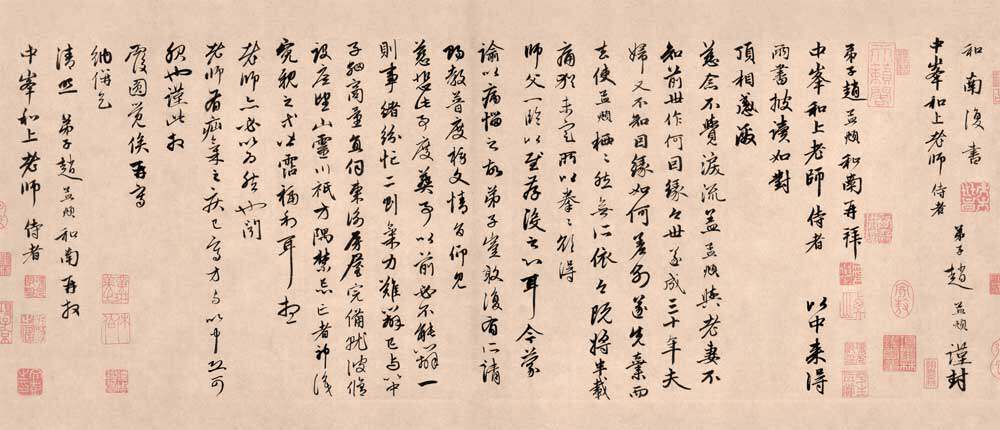 和南復書 弟子趙孟頫謹封
中峯和上老師 侍者
弟子趙孟頫和南再拜
中峯和上老師 侍者 以中来得
兩書披讀如對
頂相感激
慈念不覺淚流盖孟頫與老妻不
知前世作何因緣今世遂成三十年夫
婦又不知因緣如何差別遂先棄而
去使孟頫栖々然無所依今既將半載
痛猶未定所以拳々欲得
師父一臨以至存没之心耳今蒙
諭以病惱之故弟子豈敢復有所請
賜教普度榜文情旨仰見
慈悲此事度葬事以前必不能辦一
則事緒紛忙二則氣力難辦已与以中
子細商量直伺房屋完備就彼脩
設座望山靈川祇方隅禁忌亡者神識
究親之或沾福利耳
老師亦必以為然也聞
老師有疝氣之疾已寫方与以中恐可
服也謹此拜
覆圓覺俟再寫
納併乞
清照 弟子趙孟頫和南再拜
中峯和上老師 侍者